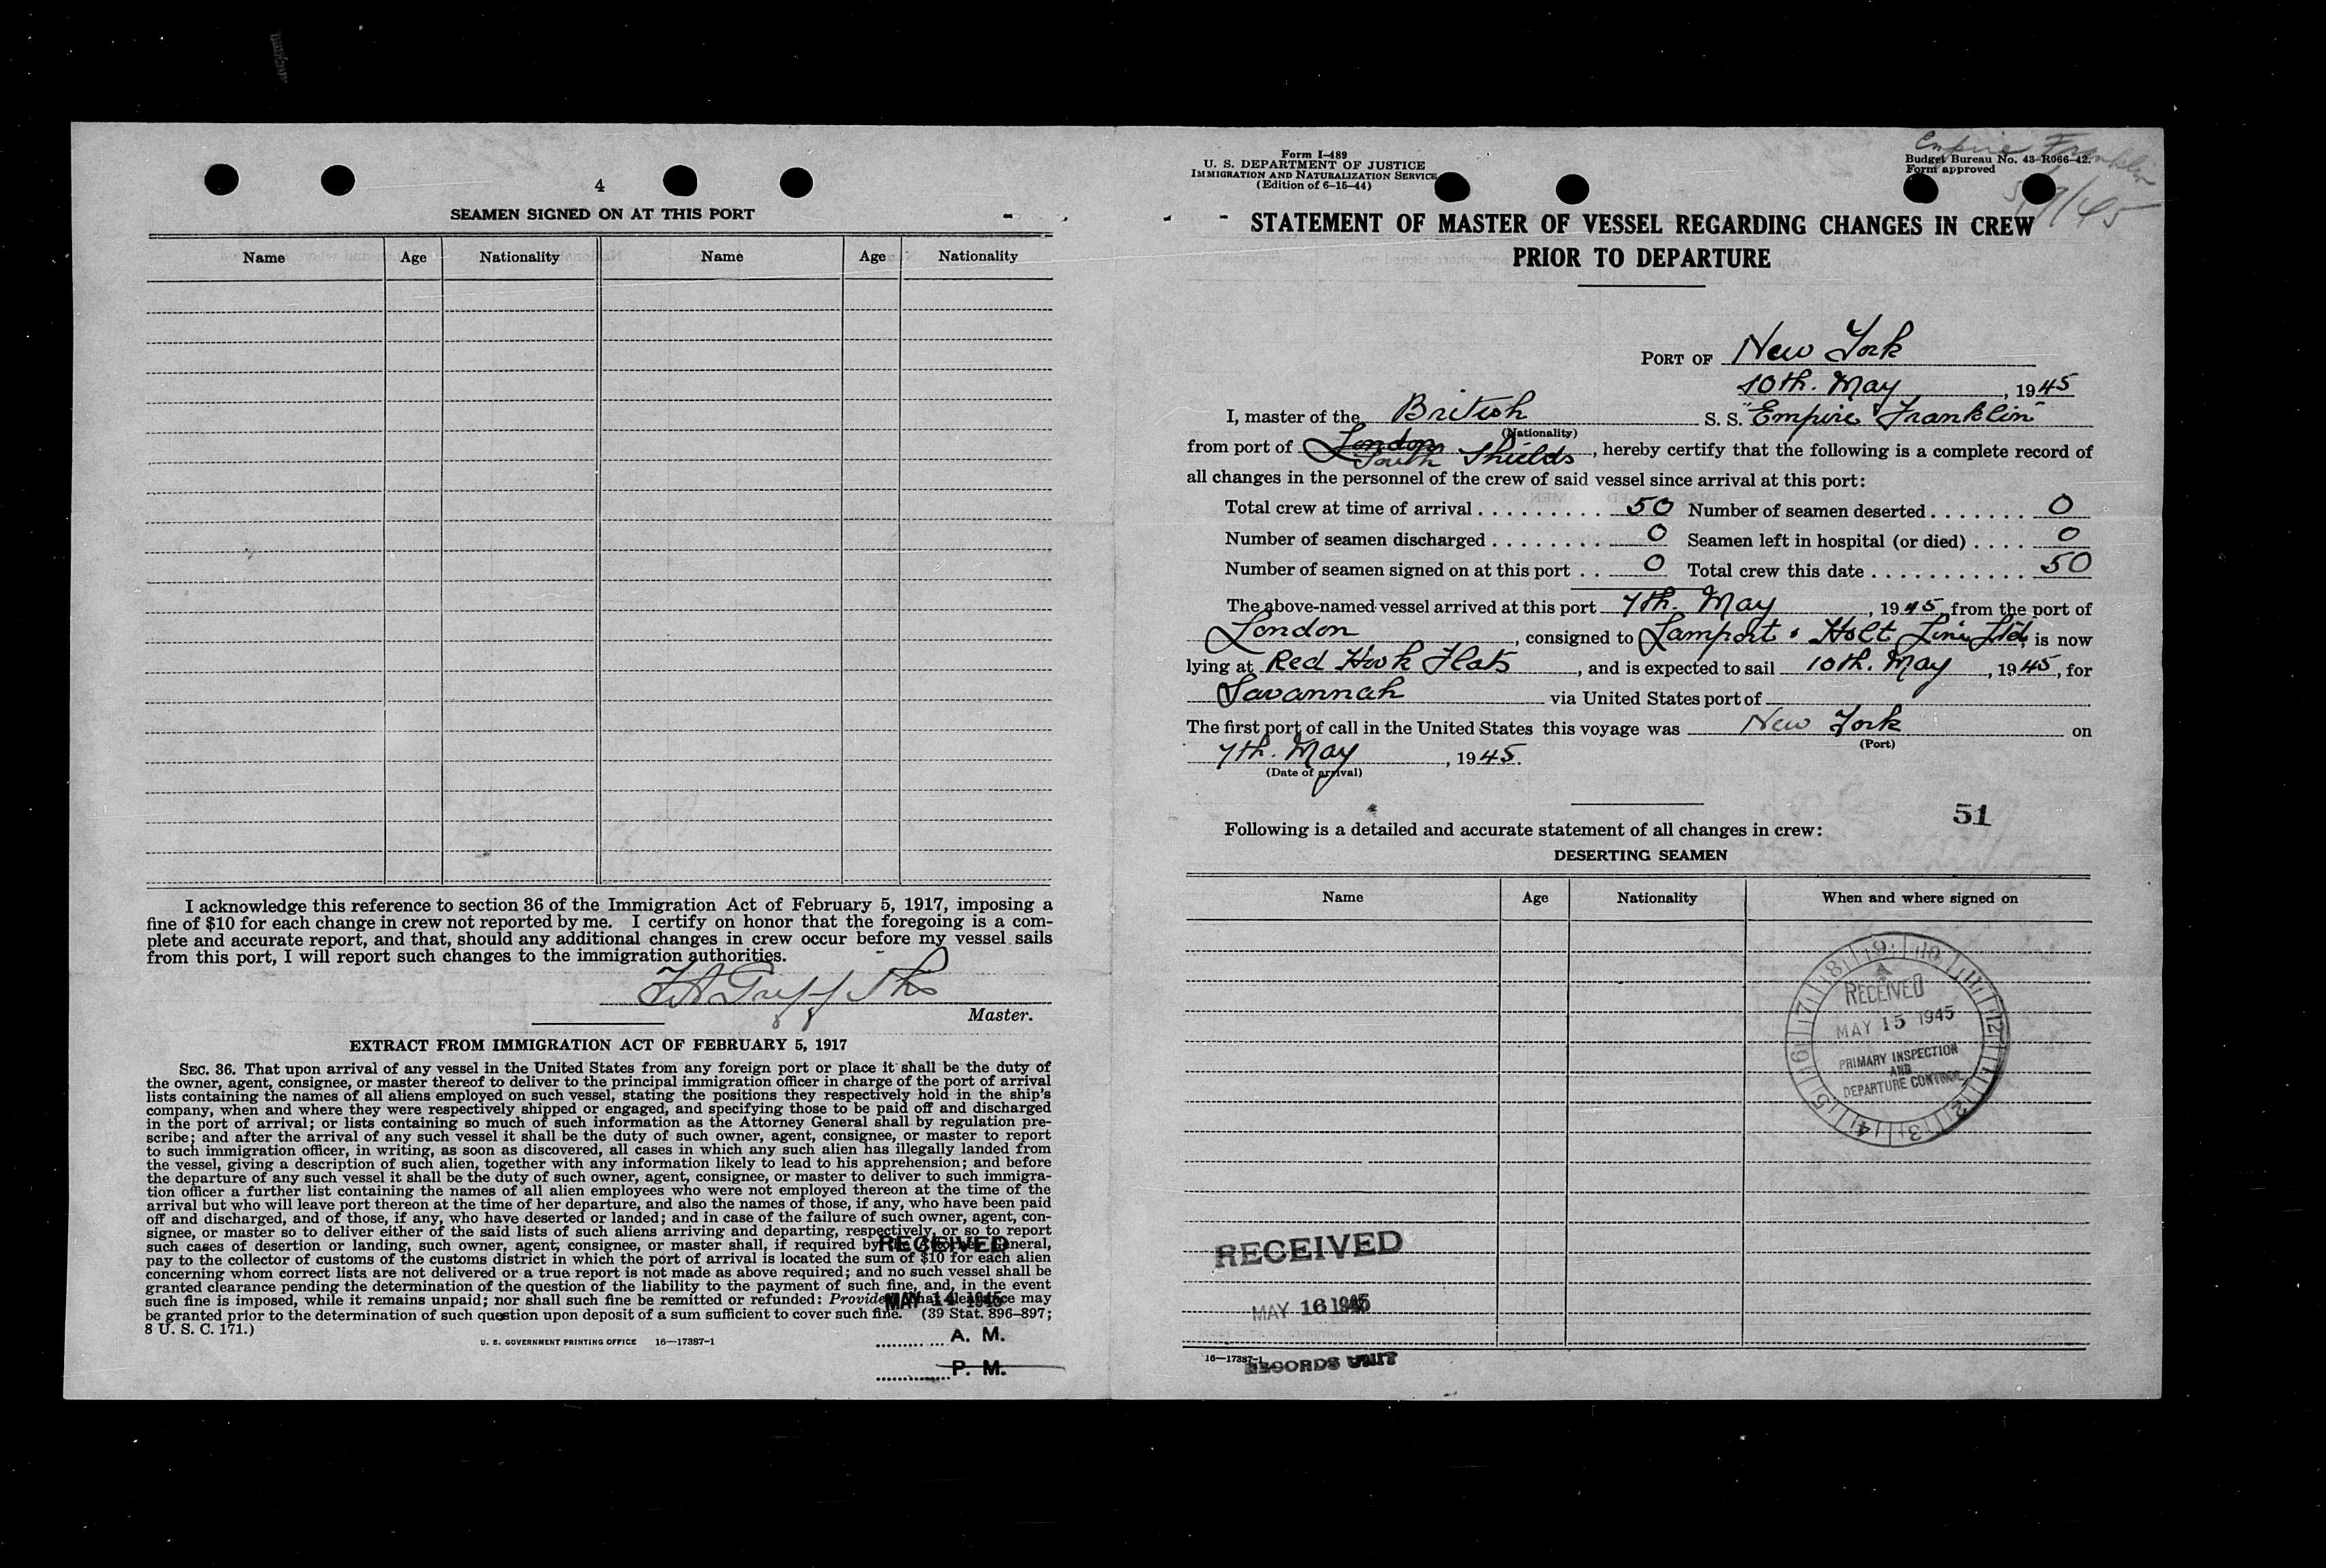 4
SEAMEN SIGNED ON AT THIS PORT
Name Age Nationality Name Age Nationality
I acknowledge this reference to section 36 of the Immigration Act of February 5, 1917, imposing a
fine of $10 for each change in crew not reported by me. I certify on honor that the foregoing is a com-
plete and accurate report, and that, should any additional changes in crew occur before my vessel sails
from this port, I will report such changes to the immigration authorities.
Master.
EXTRACT FROM IMMIGRATION ACT OF FEBRUARY 5, 1917
SEC. 36. That upon arrival of any vessel in the United States from any foreign port or place it shall be the duty of
the owner, agent, consignee, or master thereof to deliver to the principal immigration officer in charge of the port of arrival
lists containing the names of all aliens employed on such vessel, stating the positions they respectively hold in the ship's
company, when and where they were respectively shipped or engaged, and specifying those to be paid off and discharged
in the port of arrival; or lists containing so much of such information as the Attorney General shall by regulation pre-
scribe; and after the arrival of any such vessel it shall be the duty of such owner, agent, consignee, or master to report
to such immigration officer, in writing, as soon as discovered, all cases in which any such alien has illegally landed from
the vessel, giving a description of such alien, together with any information likely to lead to his apprehension; and before
the departure of any such vessel it shall be the duty of such owner, agent, consignee, or master to deliver to such immigra-
tion officer a further list containing the names of all alien employees who were not employed thereon at the time of the
arrival but who will leave port thereon at the time of her departure, and also the names of those, if any, who have been paid
off and discharged, and of those, if any, who have deserted or landed; and in case of the failure of such owner, agent, con-
signee, or master so to deliver either of the said lists of such aliens arriving and departing, respectively, or so to report
such cases of desertion or landing, such owner, agent, consignee, or master shall, if required by the Attorney General,
pay to the collector of customs of the customs district in which the port of arrival is located the sum of $10 for each alien
concerning whom correct lists are not delivered or a true report is not made as above required; and no such vessel shall be
granted clearance pending the determination of the question of the liability to the payment of such fine, and, in the event
such fine is imposed, while it remains unpaid; nor shall such fine be remitted or refunded: Provided, That clearance may
be granted prior to the determination of such question upon deposit of a sum sufficient to cover such fine. (39 Stat. 896–897;
8 U. S. C. 171.)
U. S. GOVERNMENT PRINTING OFFICE 16—17387-1
RECEIVED
MAY 14 1945
A. M.
P. M.
Form I-489
U. S. DEPARTMENT OF JUSTICE
IMMIGRATION AND NATURALIZATION SERVICE
(Edition of 6-15-44)
Empire Franklin
Budget Bureau No. 43-R066-42.
Form approved
5/7/45
STATEMENT OF MASTER OF VESSEL REGARDING CHANGES IN CREW
PRIOR TO DEPARTURE
PORT OF New York
10th. May, 1945
I, master of the British S. S. "Empire Franklin"
(Nationality)
from port of London South Shields, hereby certify that the following is a complete record of
all changes in the personnel of the crew of said vessel since arrival at this port:
Total crew at time of arrival . . . . . . . . . 50 Number of seamen deserted . . . . . . . 0
Number of seamen discharged . . . . . . . . 0 Seamen left in hospital (or died) . . . . 0
Number of seamen signed on at this port . . 0 Total crew this date . . . . . . . . . . . 50
The above-named vessel arrived at this port 7th. May, 1945, from the port of
London, consigned to Lamport & Holt Line Ltd, is now
lying at Red Hook Flats, and is expected to sail 10th. May, 1945, for
Savannah via United States port of
The first port of call in the United States this voyage was New York on
(Port)
7th. May, 1945.
(Date of arrival)
51
Following is a detailed and accurate statement of all changes in crew:
DESERTING SEAMEN
Name Age Nationality When and where signed on
9 10 11 12 1 2 3 4 5 6 7 8
RECEIVED
MAY 15 1945
PRIMARY INSPECTION
AND
DEPARTURE CONTROL
RECEIVED
MAY 16 1945
16—17387-1
RECORDS UNIT